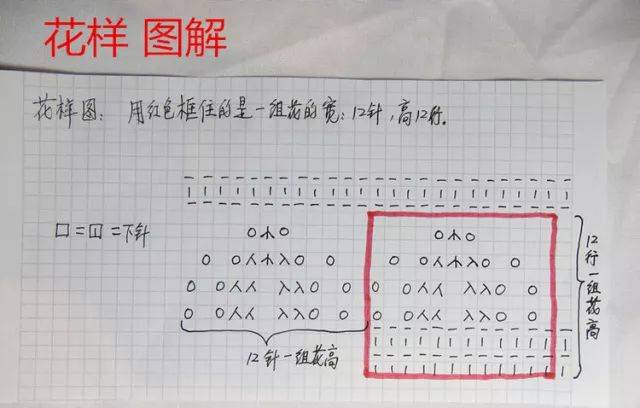 花样 图解
花样图: 用红色框住的是一组花的宽:12针,高12行。
口=口=下针
12针一组花高
12行一组花高